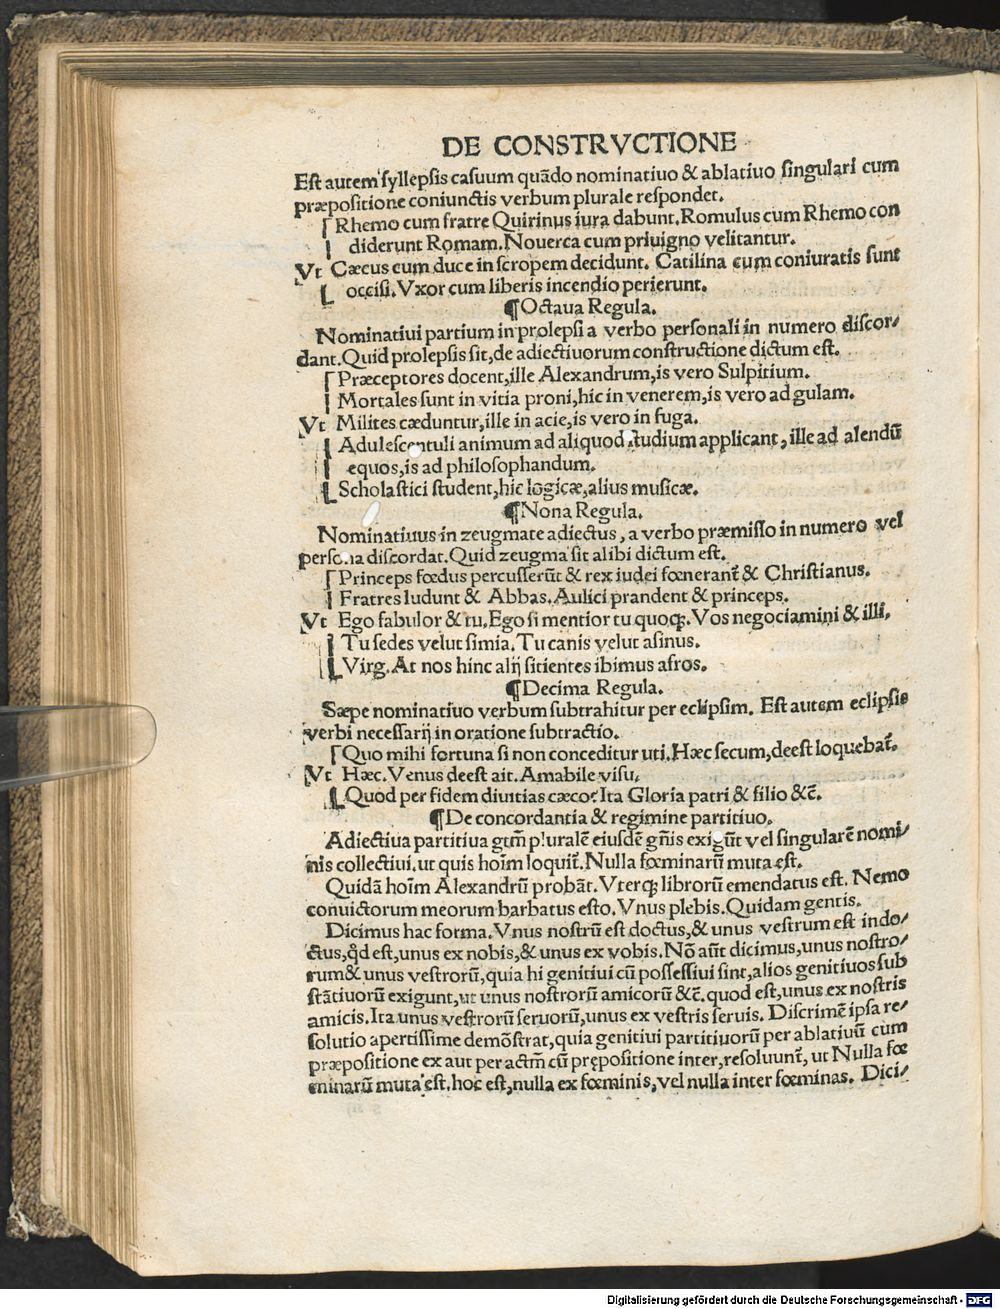 DE CONSTRVCTIONE
Est autem syllepsis casuum quādo nominatiuo & ablatiuo singulari cum
præpositione coniunctis verbum plurale respondet.
Rhemo cum fratre Quirinus iura dabunt. Romulus cum Rhemo con
diderunt Romam. Nouerca cum priuigno velitantur.
Vt Cæcus cum duce in scropem decidunt. Catilina cum coniuratis sunt
occisi. Vxor cum liberis incendio perierunt.
¶Octaua Regula.
Nominatiui partium in prolepsi a verbo personali in numero discor/
dant. Quid prolepsis sit, de adiectiuorum constructione dictum est.
Præceptores docent, ille Alexandrum, is vero Sulpitium.
Mortales sunt in vitia proni, hic in venerem, is vero ad gulam.
Vt Milites cæduntur, ille in acie, is vero in fuga.
Adulescentuli animum ad aliquod studium applicant, ille ad alendū
equos, is ad philosophandum.
Scholastici student, hic logicæ, alius musicæ.
¶Nona Regula.
Nominatiuus in zeugmate adiectus, a verbo præmisso in numero vel
persona discordat. Quid zeugma sit alibi dictum est.
Princeps fœdus percusserūt & rex iudei fœnerant̄ & Christianus.
Fratres ludunt & Abbas. Aulici prandent & princeps.
Vt Ego fabulor & tu. Ego si mentior tu quoqꝫ. Vos negociamini & illi.
Tu sedes velut simia. Tu canis velut asinus.
Virg. At nos hinc alij sitientes ibimus afros.
¶Decima Regula.
Sæpe nominatiuo verbum subtrahitur per eclipsim. Est autem eclipsis
verbi necessarij in oratione subtractio.
Quo mihi fortuna si non conceditur uti. Hæc secum, deest loquebat̄.
Vt Hæc. Venus deest ait. Amabile visu,
Quod per fidem diuitias cæco? Ita Gloria patri & filio &c̄.
¶De concordantia & regimine partitiuo.
Adiectiua partitiua gtm̄ pluralē eiusdē gn̄is exigūt vel singularē nomi/
nis collectiui. ut quis hoīm loquit̄. Nulla fœminarū muta est.
Quidā hoīm Alexandrū probāt. Vterqꝫ librorū emendatus est. Nemo
conuictorum meorum barbatus esto. Vnus plebis. Quidam gentis.
Dicimus hac forma. Vnus nostrū est doctus, & unus vestrum est indo/
ctus, qd̄ est, unus ex nobis, & unus ex vobis. Nō aūt dicimus, unus nostro/
rum & unus vestrorū, quia hi genitiui cū possessiui sint, alios genitiuos sub
stātiuorū exigunt, ut unus nostrorū amicorū &c̄. quod est, unus ex nostris
amicis. Ita unus vestrorū seruorū, unus ex vestris seruis. Discrimē ipsa re/
solutio apertissime demōstrat, quia genitiui partitiuorū per ablatiuū cum
præpositione ex aut per actm̄ cū prępositione inter, resoluunt̄, ut Nulla fœ
minarū muta est. hoc est, nulla ex fœminis, vel nulla inter fœminas. Dici/
Digitalisierung gefördert durch die Deutsche Forschungsgemeinschaft - DFG